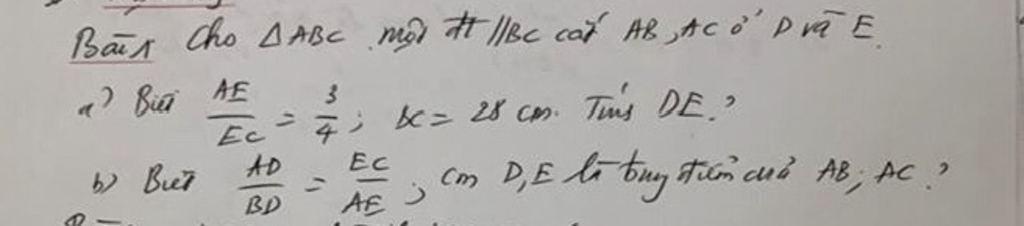 Bài 1 Cho △ABC một đt //BC cắt AB, AC ở D và E.
a) Biết AE/EC = 3/4; BC = 28 cm. Tính DE?
b) Biết AD/BD = EC/AE; Cm D, E là trung điểm của AB; AC?